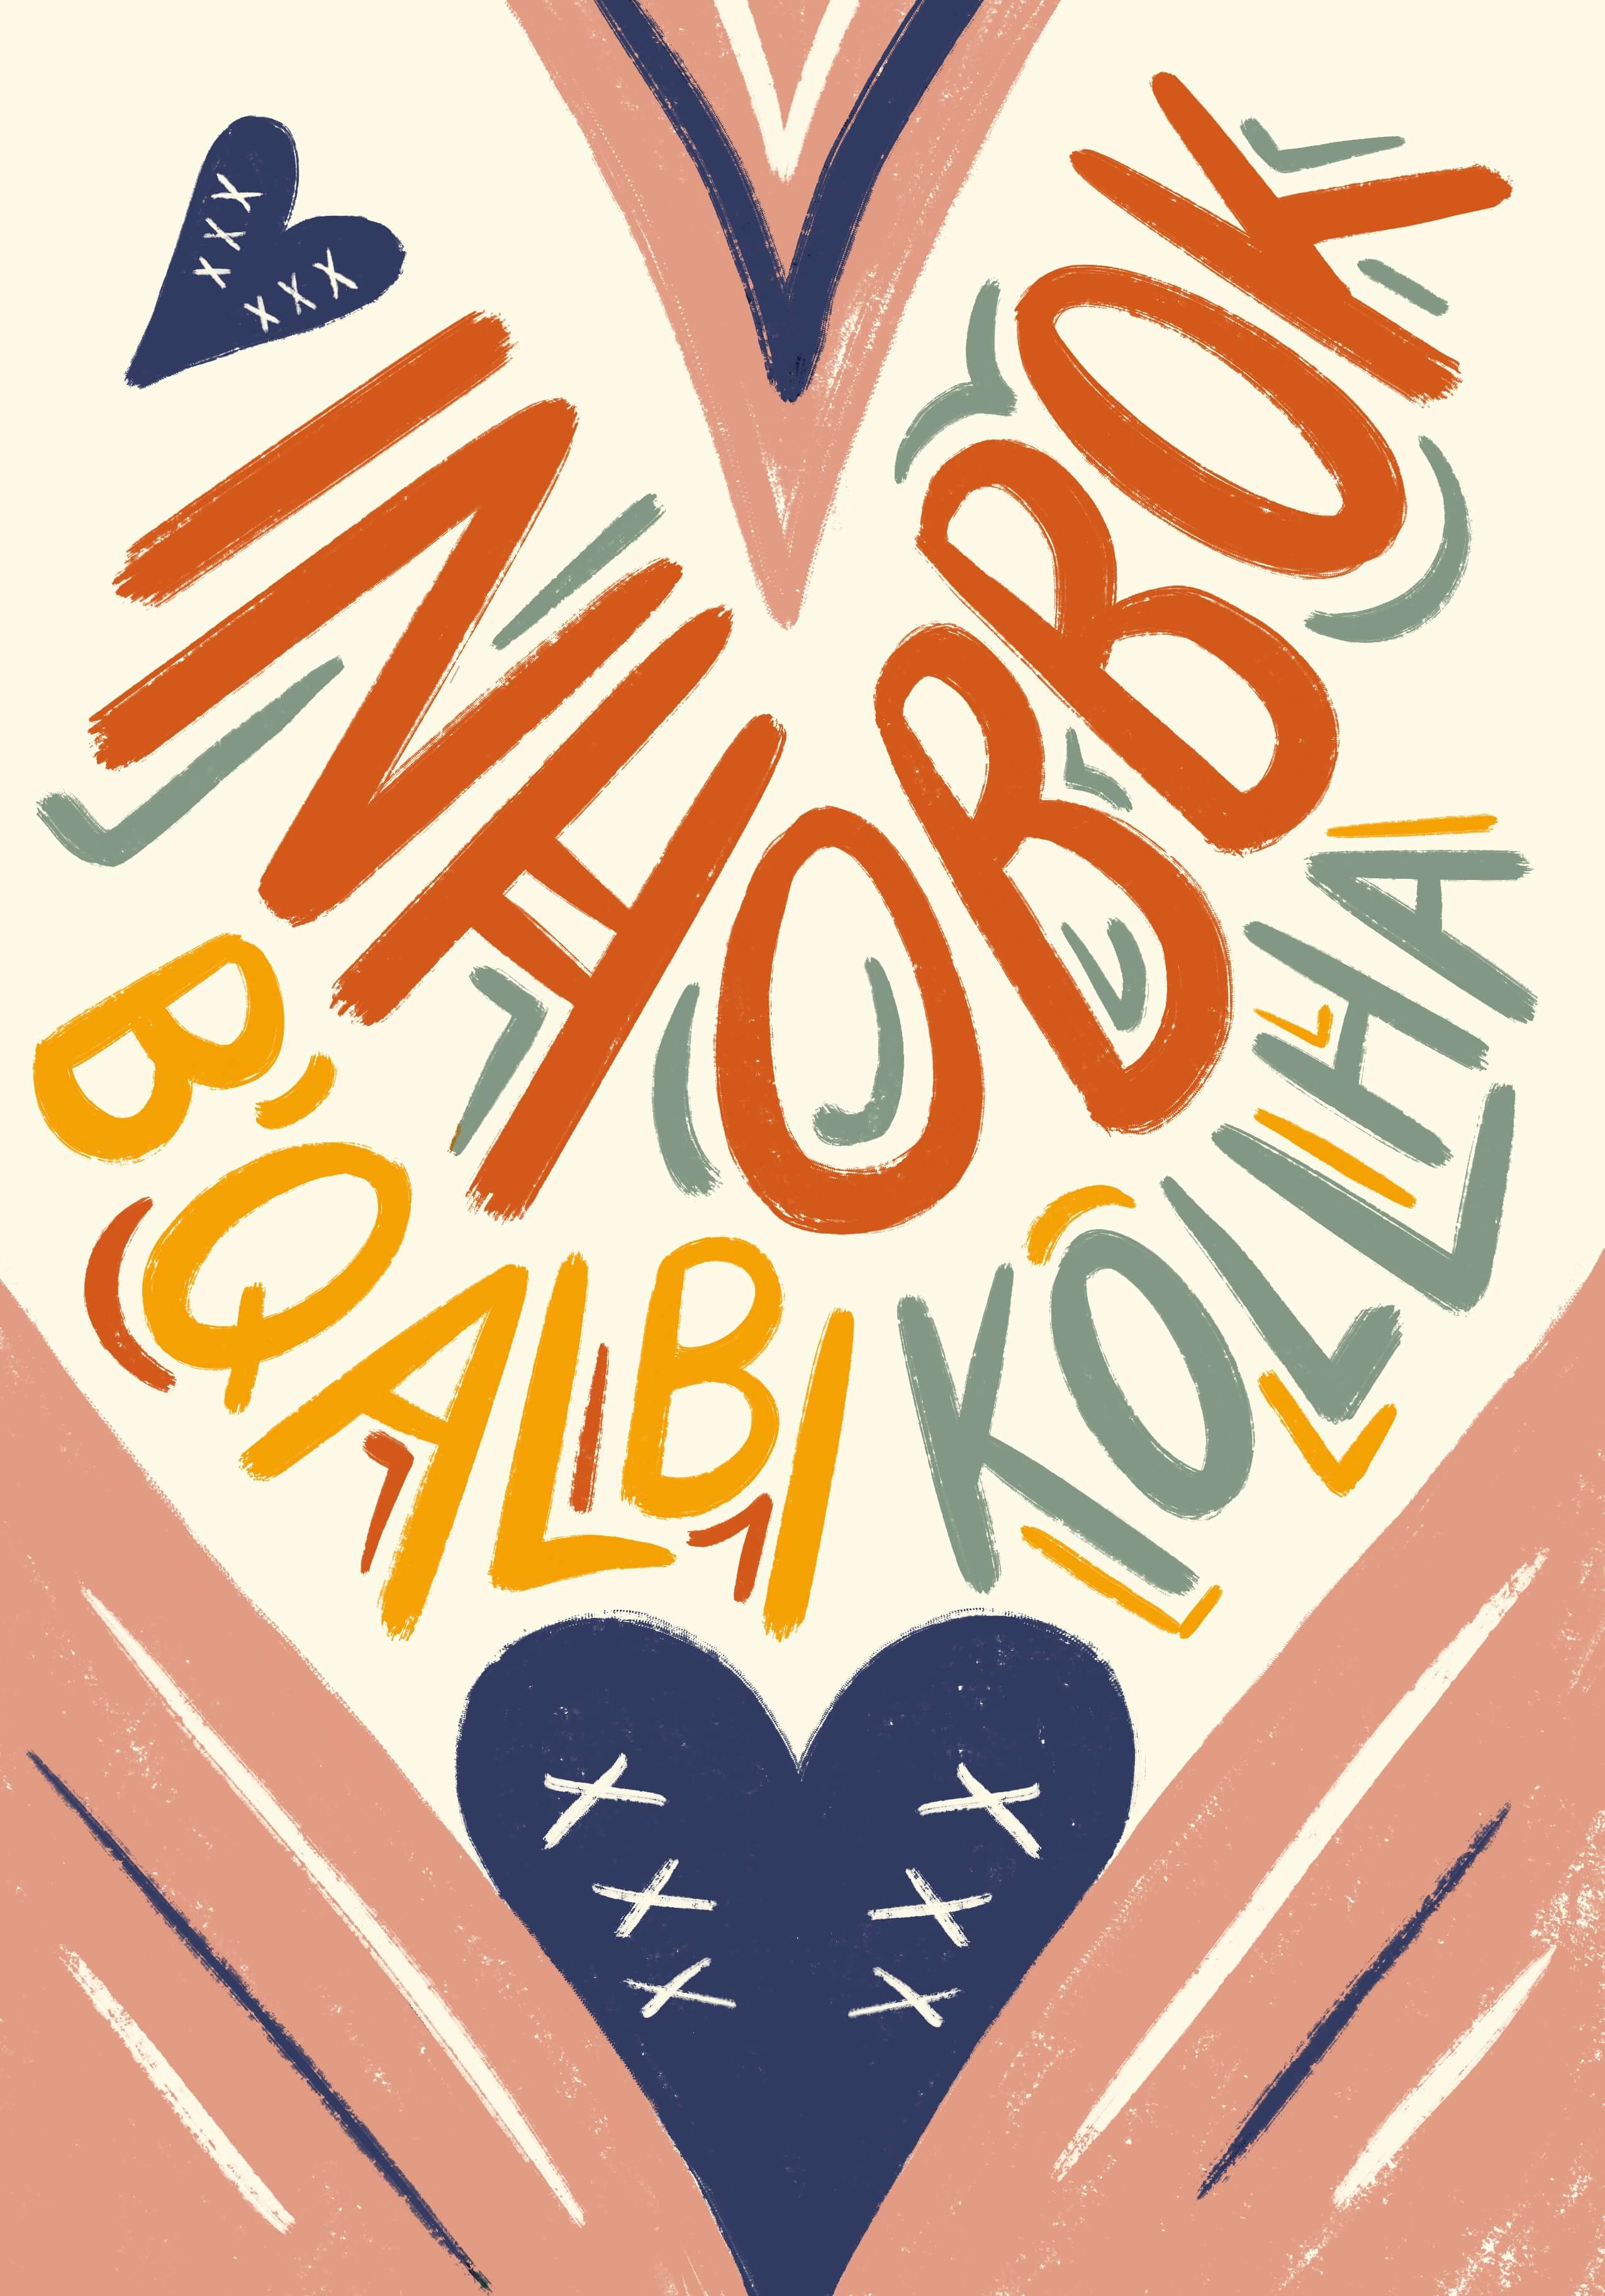 INHOBBOK
B'QALBI KOLLHA